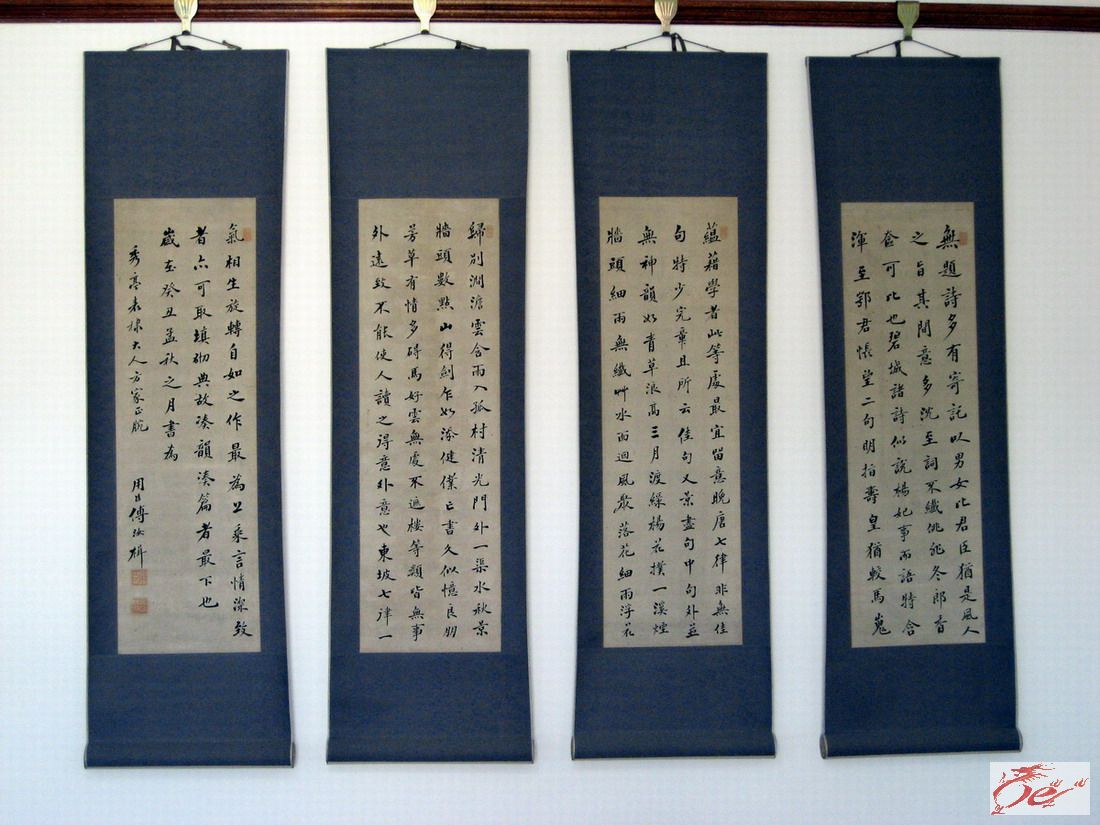 無題詩多有寄託以男女比君臣猶是風人
之旨其間意多沈至詞不纖佻非冬郎香
奩可比也碧城諸詩似說楊妃事而語特含
渾至鄂君悵望二句明指壽皇猶較馬嵬
蘊藉學者此等處最宜留意晚唐七律非無佳
句特少完章且所云佳句又景盡句中句外並
無神韻如青草浪高三月渡綠楊花撲一溪煙
牆頭細雨無纖艸水面迴風聚落花細雨浮花
歸別澗澹雲含雨入孤村清光門外一渠水秋景
牆頭數點山得劍乍如添健僕亡書久似憶良朋
芳草有情多碍馬好雲無處不遮樓等類皆無事
外遠致不能使人讀之得意外意也東坡七律一
氣相生放轉自如之作最為上乘言情深致
者亦可取填砌典故湊韻湊篇者最下也
歲在癸丑孟秋之月書為
秀亭表棣大人方家正腕
周目傅